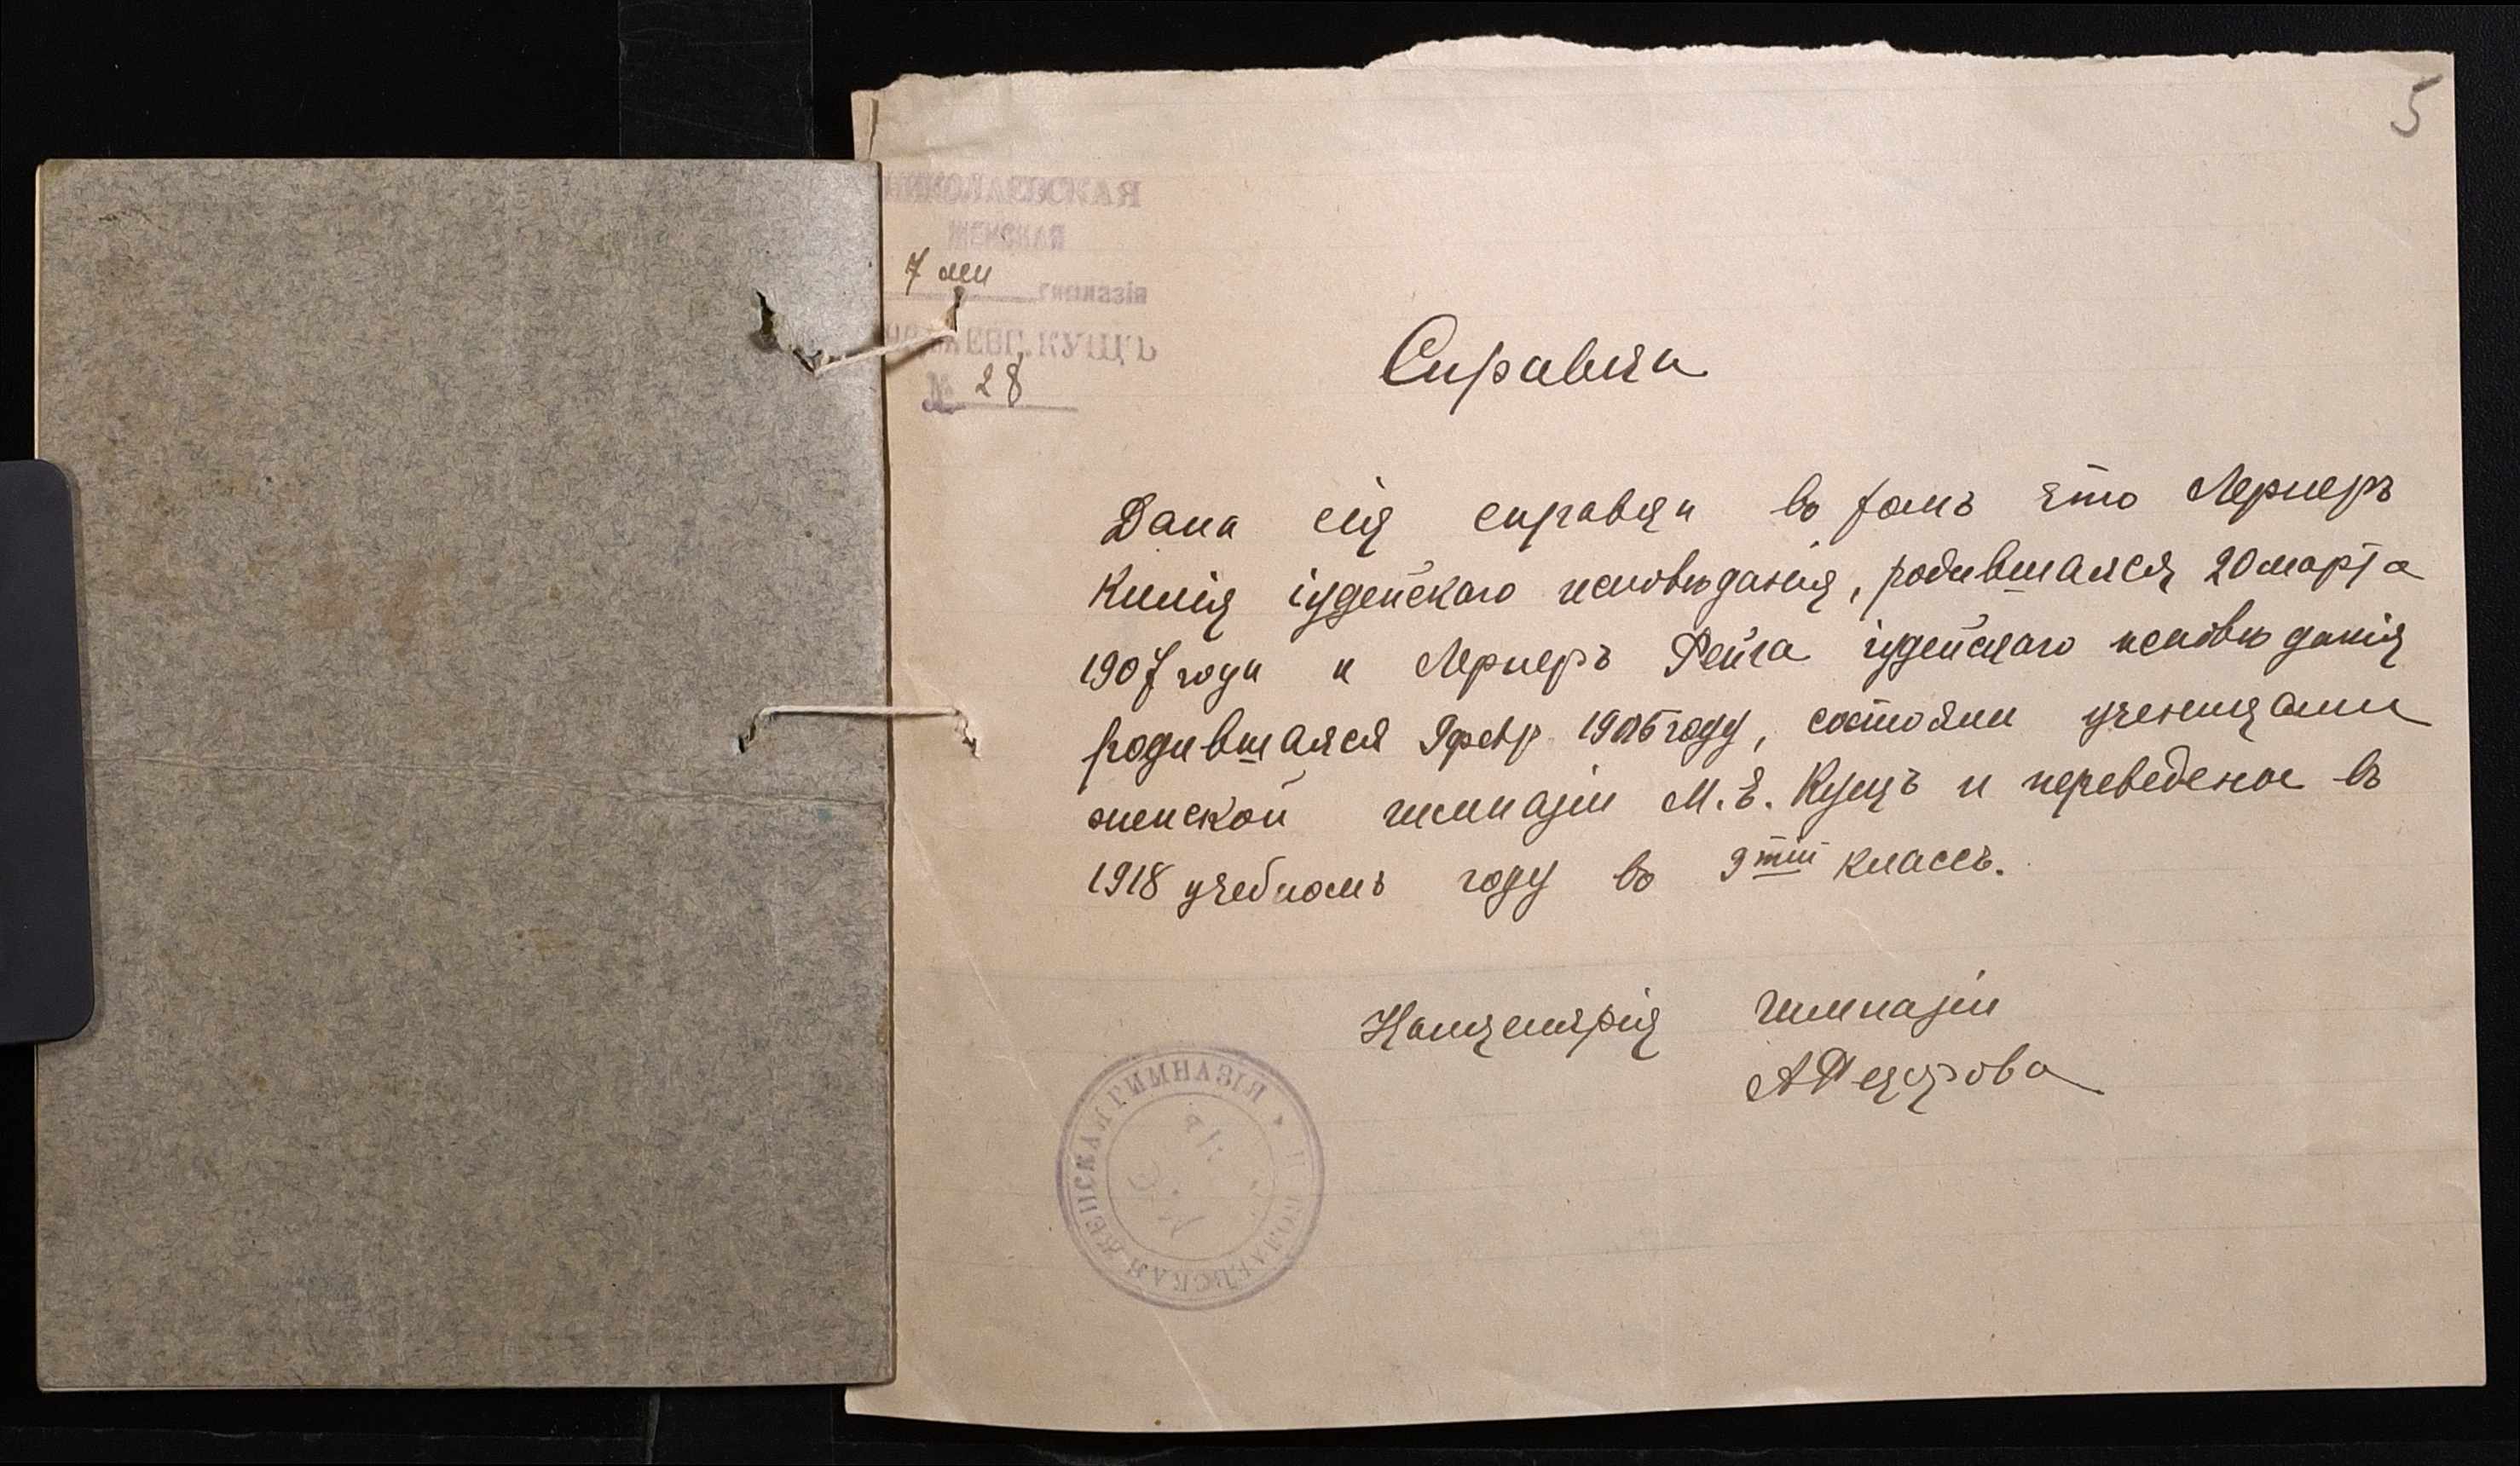 5
НИКОЛАЕВСКАЯ
ЖЕНСКАЯ
7 ми гимназія
ЕВГ. КУЩЪ
№ 28
Справка
Дана сія справка въ томъ что Лернеръ
Килія іудейскаго исповѣданія, родившаяся 20 марта
1907 года и Лернеръ Фейга іудейскаго исповѣданія
родившаяся 9 февр 1906 году, состояли ученицами
женской гимназіи М. Е. Кущъ и переведены въ
1918 учебномъ году во классъ.
Канцелярія гимназіи
НИКОЛАЕВСКАЯ ЖЕНСКАЯ ГИМНАЗІЯ